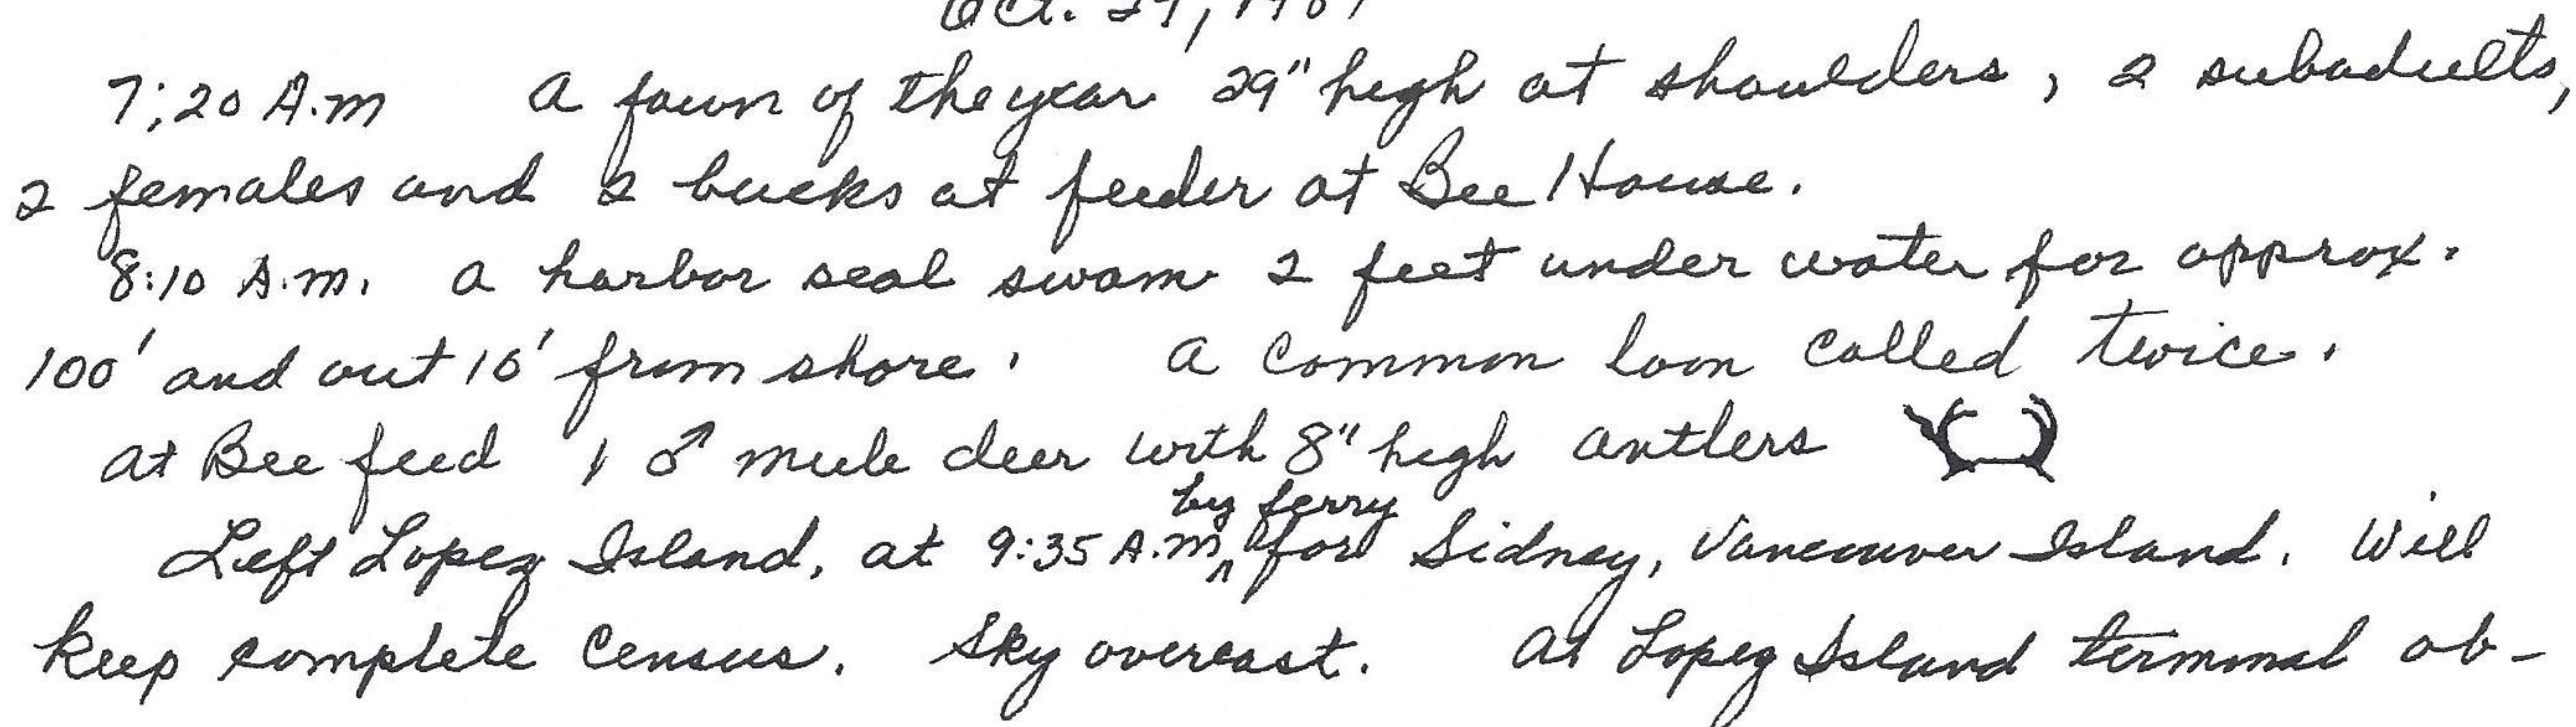 Oct.
7:20 A.m A fawn of the year 29" high at shoulders, 2 subadults,
2 females and 2 bucks at feeder at Bee House.
8:10 A.m. A harbor seal swam 2 feet under water for approx.
100' and out 10' from shore. A common loon called twice.
At Bee feed 1 ♂ mule deer with 8" high antlers
by ferry
Left Lopez Island, at 9:35 A.m ^ for Sidney, Vancouver Island. Will
keep complete census. Sky overcast. At Lopez Island terminal ob-